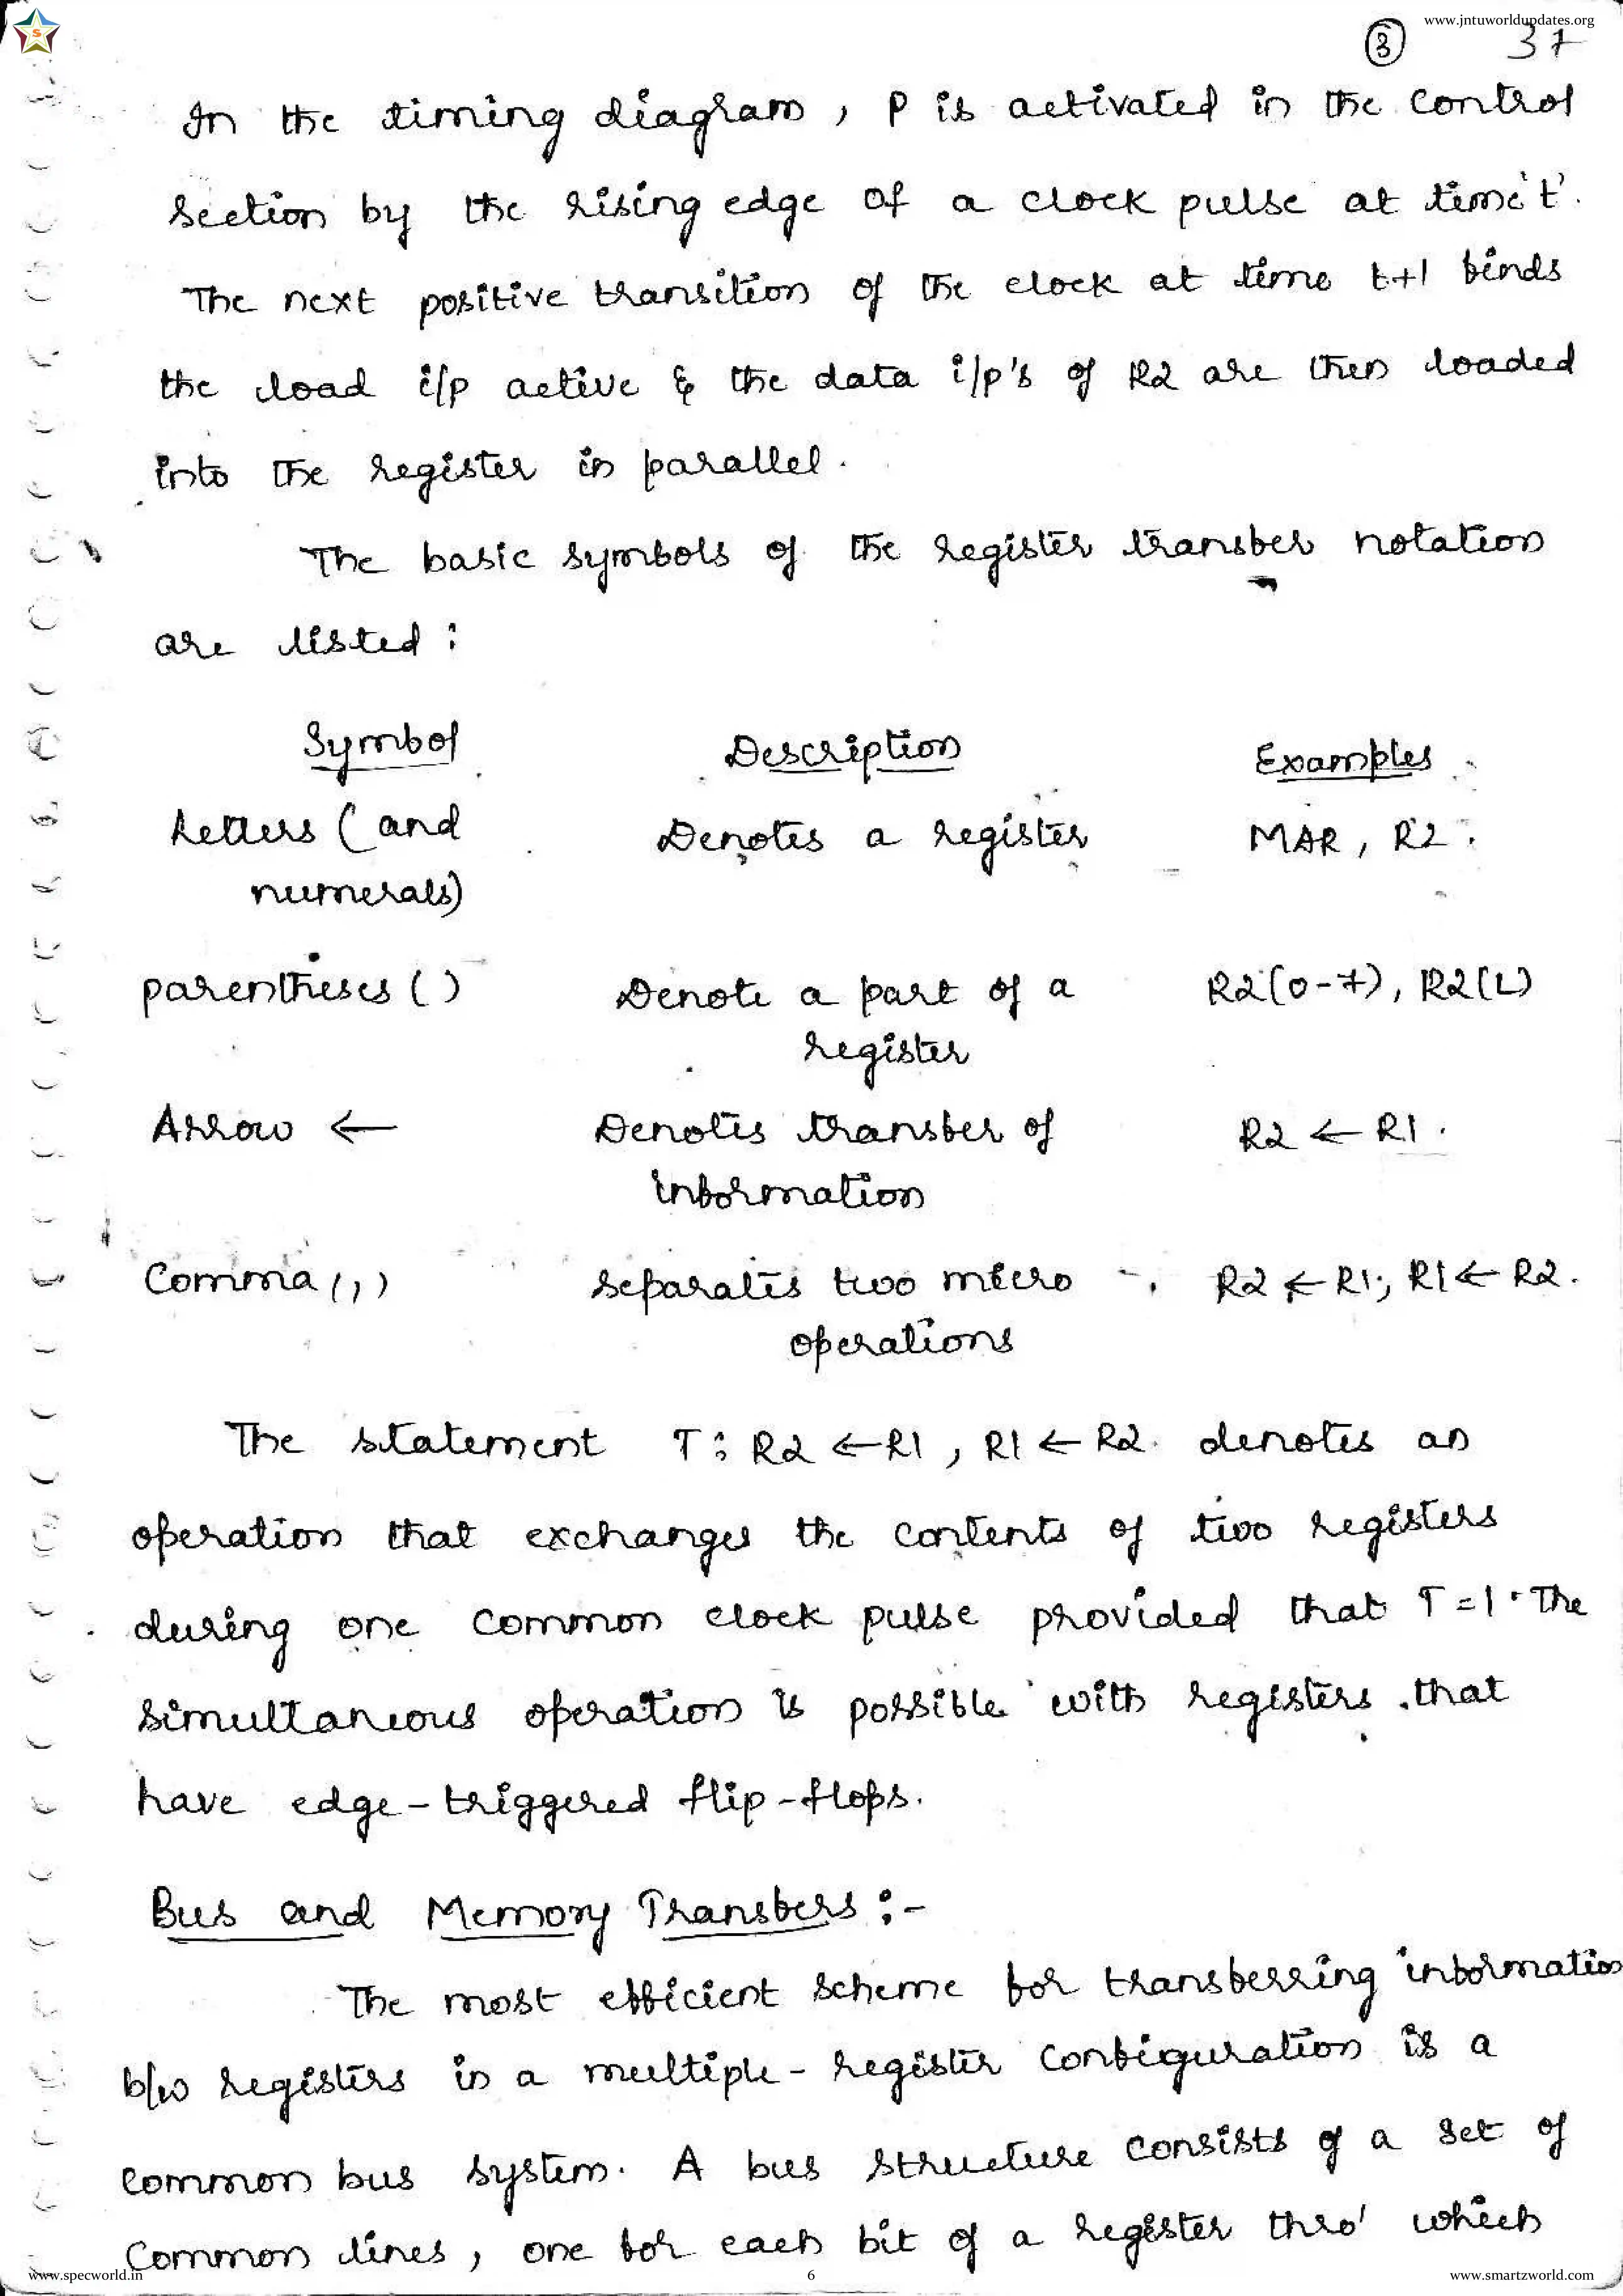 www.jntuworldupdates.org
S
3 37
In the timing diagram, P is activated in the control
section by the rising edge of a clock pulse at time 't'.
The next positive transition of the clock at time t+1 finds
the load i/p active & the data i/p's of R2 are then loaded
into the register in parallel.
The basic symbols of the register transfer notation
are listed:
Symbol Description Examples
Letters (and Denotes a register MAR, R2
numerals)
parentheses () Denote a part of a R2(0-7), R2(L)
register
Arrow ← Denotes transfer of R2 ← R1.
information
Comma (,) separates two micro R2 ← R1, R1 ← R2.
operations
The statement T: R2 ← R1, R1 ← R2 denotes an
operation that exchanges the contents of two registers
during one common clock pulse provided that T=1. The
simultaneous operation is possible with registers that
have edge-triggered flip-flops.
Bus and Memory Transfers:-
The most efficient scheme for transferring information
b/w registers in a multiple-register configuration is a
common bus system. A bus structure consists of a set of
common lines, one for each bit of a register thro' which
www.specworld.in 6 www.smartzworld.com